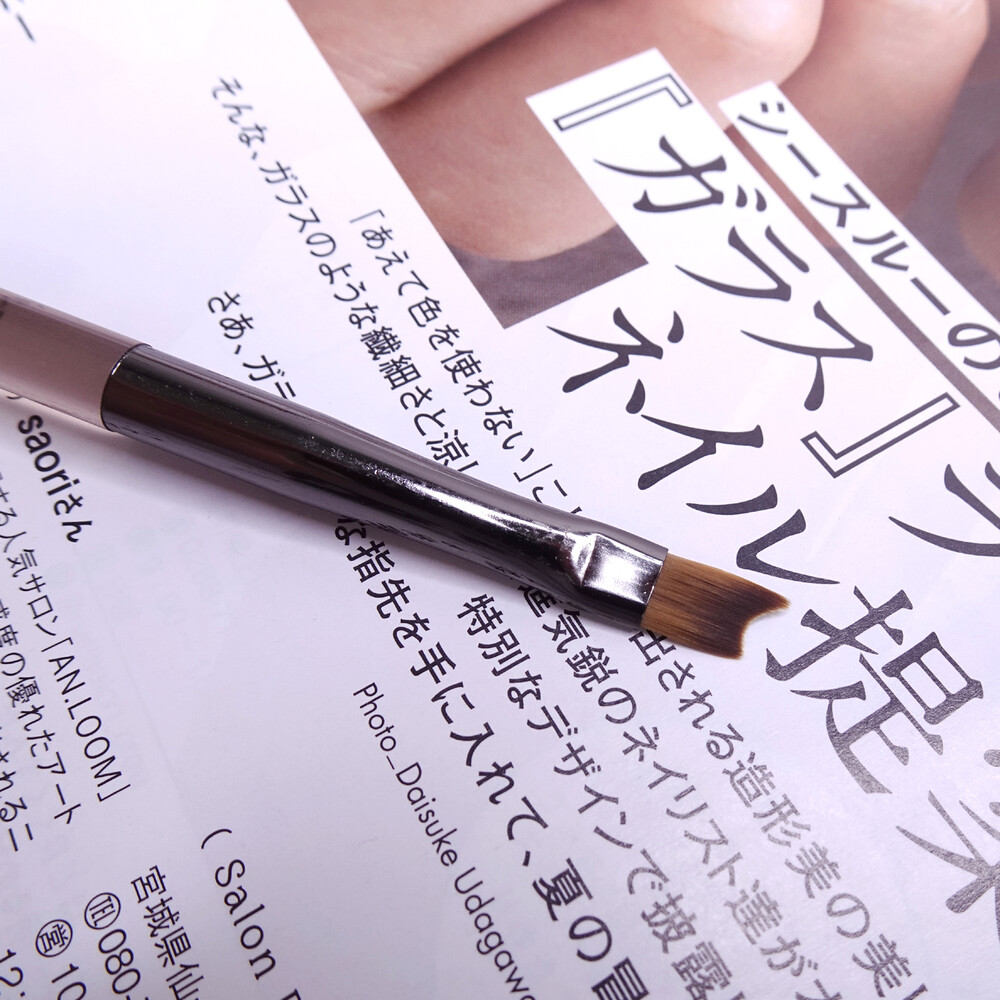 シースルーの
『ガラス』
ネイル提案
「あえて色を使わない」こ
出される造形美の美し
そんな、ガラスのような繊細さと涼し
進気鋭のネイリスト達が
特別なデザインで披露
さあ、ガラ
な指先を手に入れて、夏の冒
Photo_Daisuke Udagawa
saoriさん
する人気サロン「AN.LOOM」
度の優れたアート
されるニ
( Salon
宮城県仙
TEL 080-
営 10
12: